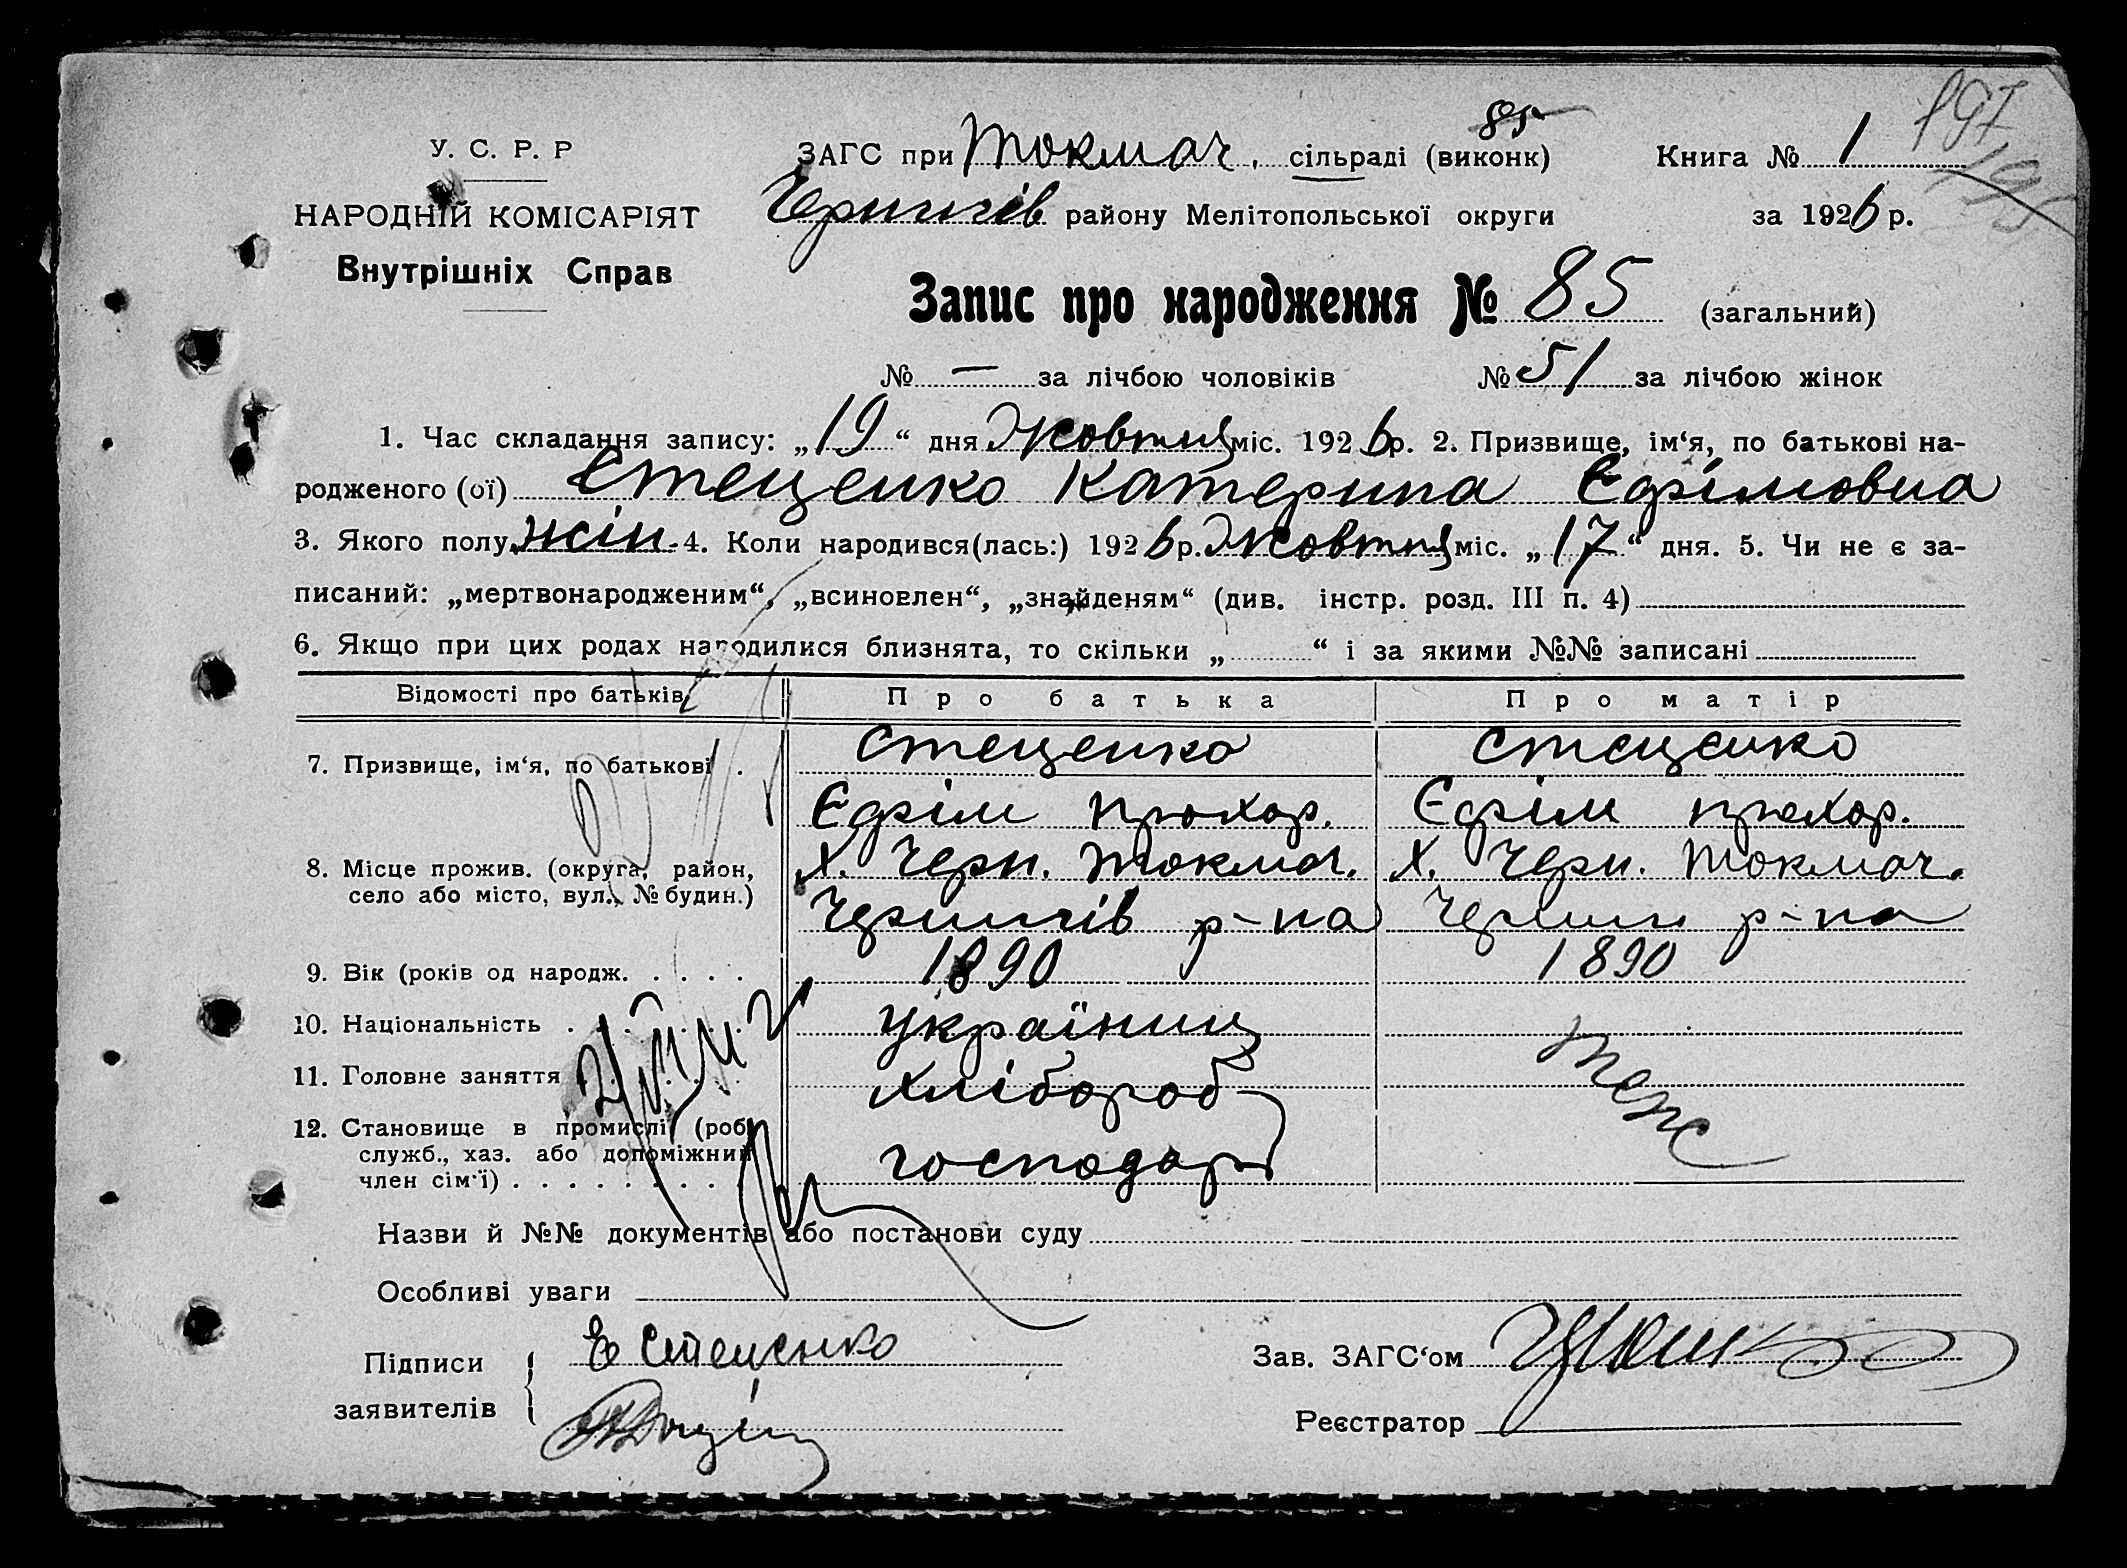 85
У. С. Р. Р ЗАГС при Токмач. сільраді (виконк) Книга № 1 197
195
НАРОДНІЙ КОМІСАРІЯТ Чернигів району Мелітопольської округи за 1926 р.
Внутрішніх Справ
Запис про народження № 85 (загальний)
№ — за лічбою чоловіків № 51 за лічбою жінок
1. Час складання запису: „19“ дня Жовтня міс. 1926 р. 2. Призвище, ім‘я, по батькові на-
родженого (ої) Стеценко Катерина Єфімовна
3. Якого полу жін. 4. Коли народився(лась:) 1926 р. Жовтня міс. „17“ дня. 5. Чи не є за-
писаний: „мертвонародженим“, „всиновлен“, „знайденям“ (див. інстр. розд. III п. 4)
6. Якщо при цих родах народилися близнята, то скільки „ “ і за якими №№ записані
Відомості про батьків Про батька Про матір
7. Призвище, ім‘я, по батькові . Стеценко Стеценко
Єфім Прохор. Єфім Прохор.
8. Місце прожив. (округа, район, х. Черн. Токмач. х. Черн. Токмач.
село або місто, вул., № будин.) Чернигів р-на Черниг р-на
9. Вік (років од народж. . . . . 1890 1890
10. Національність . . . . . українец
11. Головне заняття . . . . . хлібороб теж
12. Становище в промислі (роб.
служб., хаз. або допоміжний господар
член сім‘ї) . . . . . . . .
Назви й №№ документів або постанови суду
Особливі уваги
Підписи Е Стеценко Зав. ЗАГС‘ом
заявителів Реєстратор